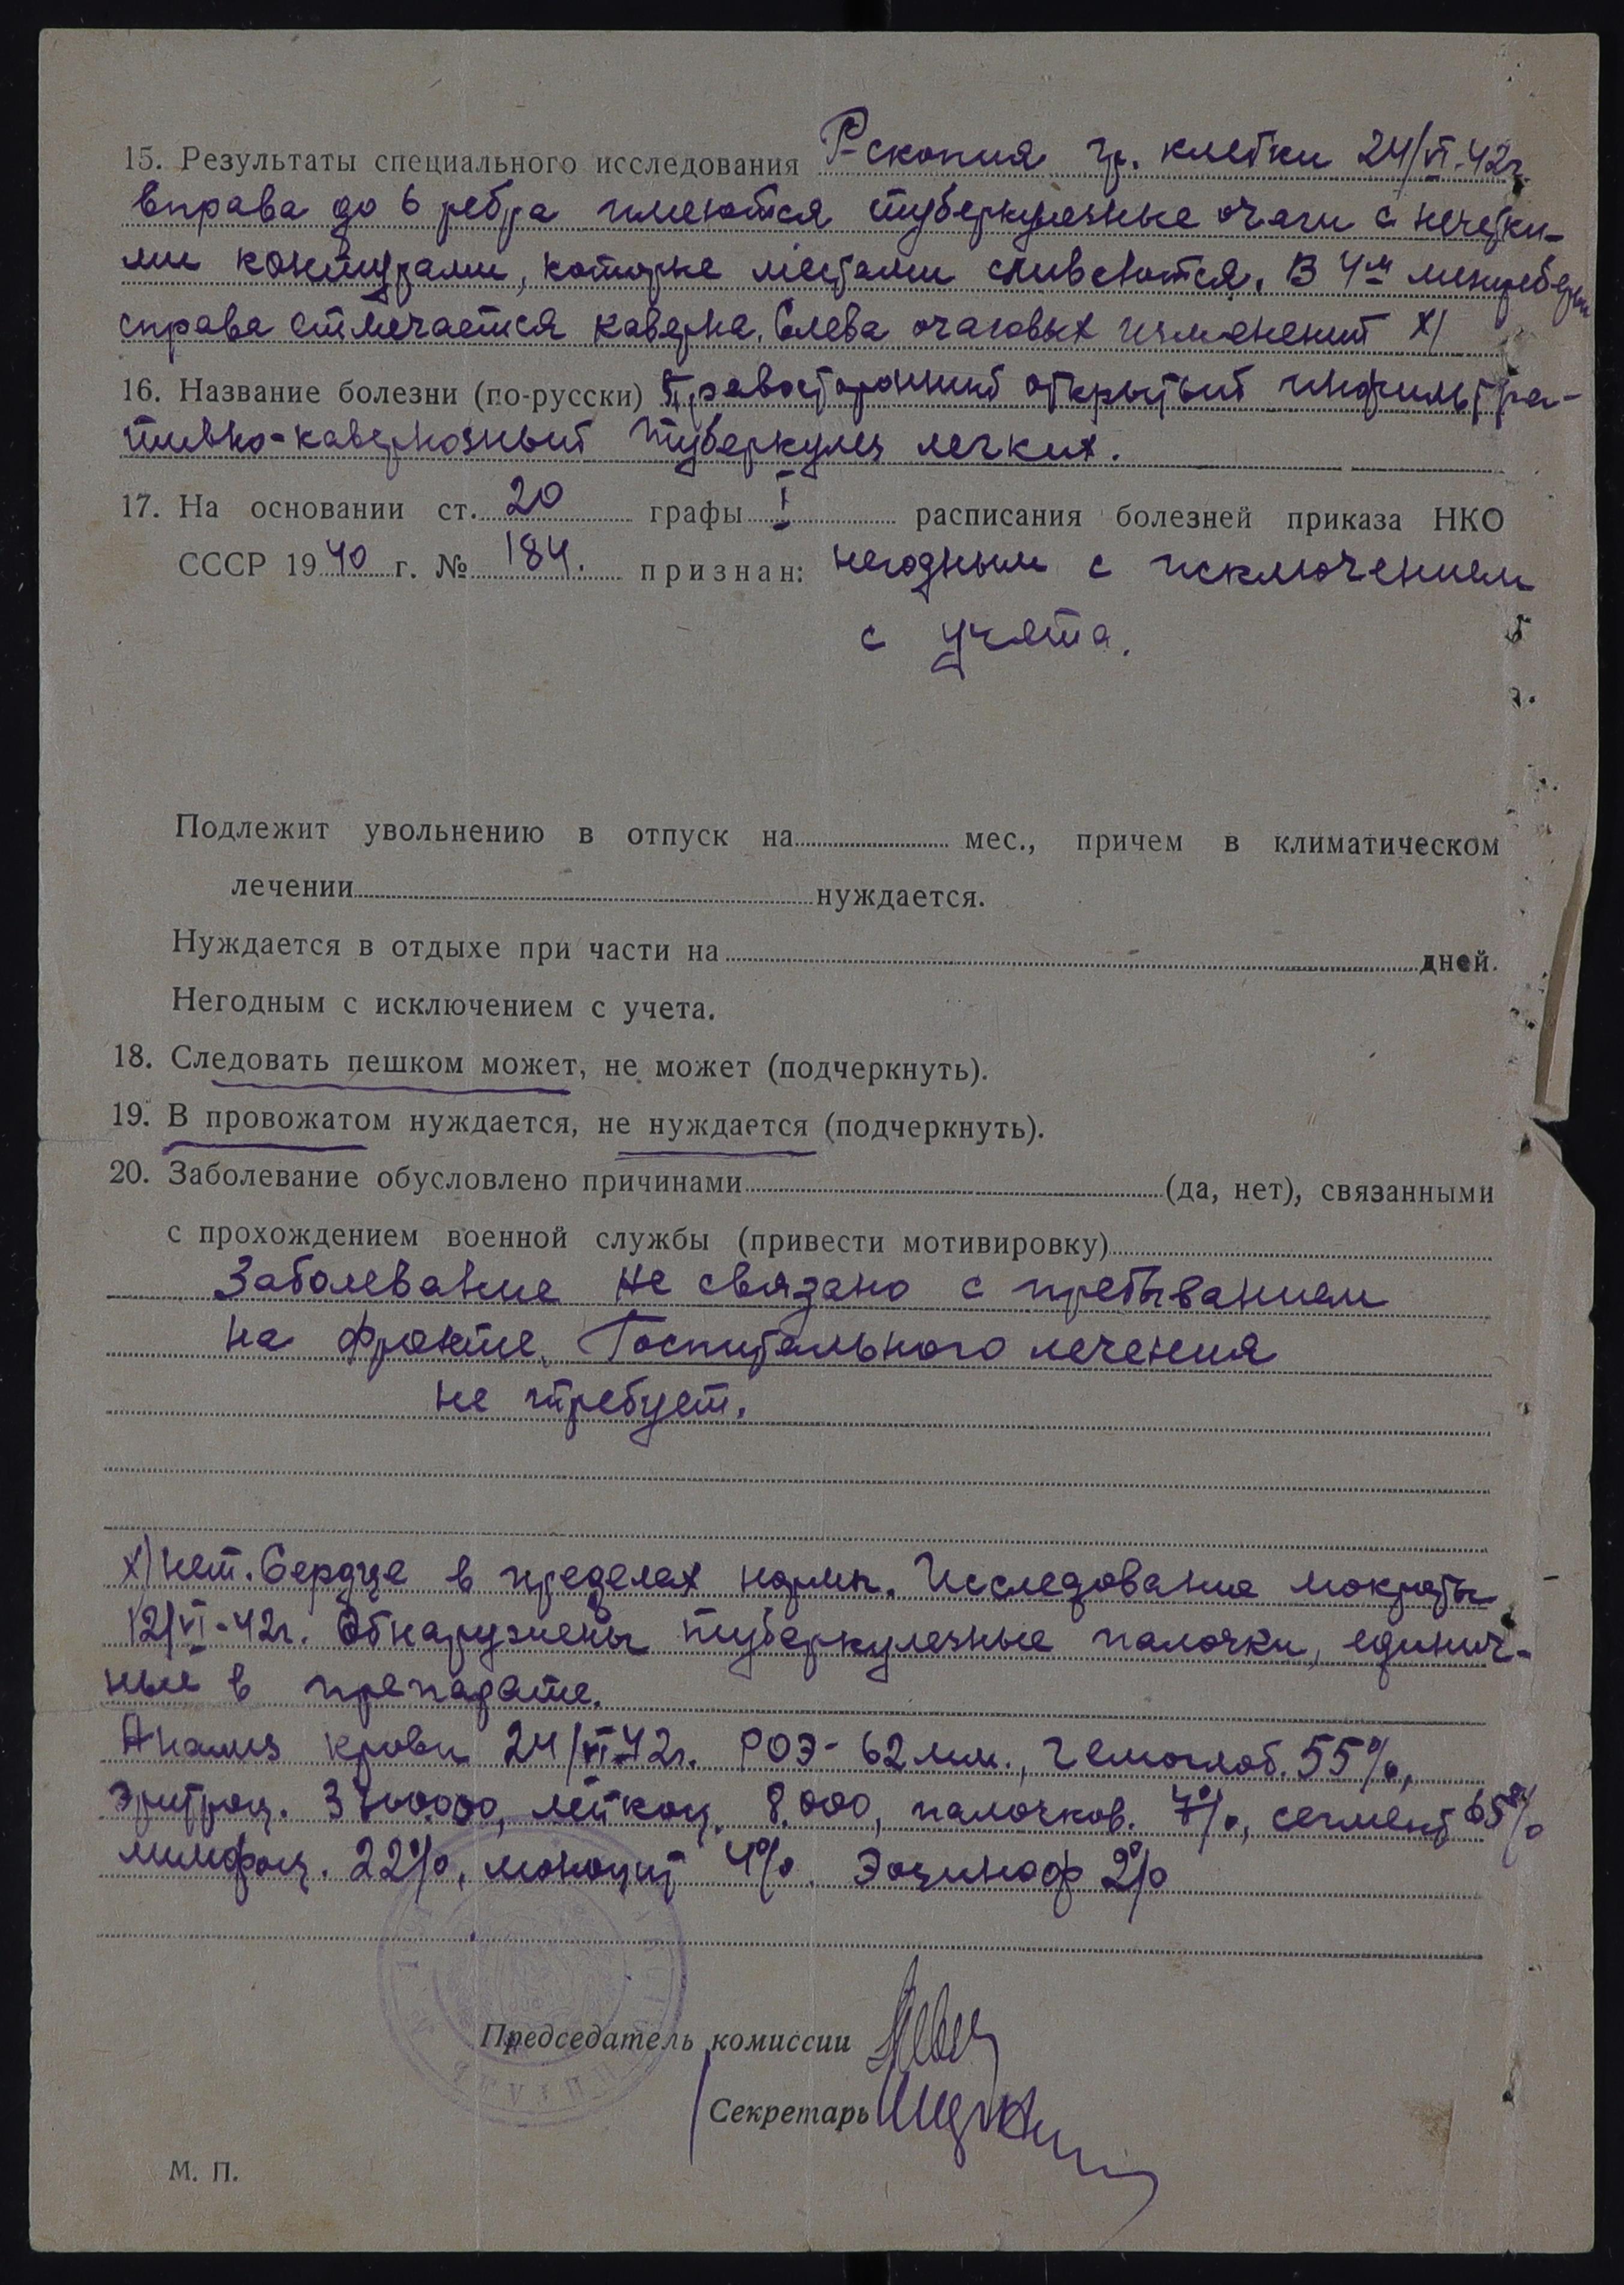 15. Результаты специального исследования Р-скопия гр. клетки 24/VI-42г.
вправа до 6 ребра имеются туберкулезные очаги с нечетки-
ми контурами, которые местами сливаются. В 4м межреберье
справа отмечается каверна. Слева очаговых изменений х)
16. Название болезни (по-русски) Правосторонний открытый инфильтра-
тивно-кавернозный туберкулез легких.
17. На основании ст. 20 графы I расписания болезней приказа НКО
СССР 1940 г. № 184. признан: негодным с исключением
с учета.
Подлежит увольнению в отпуск на мес., причем в климатическом
лечении нуждается.
Нуждается в отдыхе при части на дней.
Негодным с исключением с учета.
18. Следовать пешком может, не может (подчеркнуть).
19. В провожатом нуждается, не нуждается (подчеркнуть).
20. Заболевание обусловлено причинами (да, нет), связанными
с прохождением военной службы (привести мотивировку)
Заболевание не связано с пребыванием
на фронте. Госпитального лечения
не требует.
х) нет. Сердце в пределах нормы. Исследование мокроты
12/VI-42г. Обнаружены туберкулезные палочки, единич-
ные в препарате.
Анализ крови 24/VI-42г. РОЭ-62мм., гемоглоб. 55%,
Эритроц. лейкоц. 8.000, палочков. 7%, сегмент 65%
лимфоц. 22%, моноцит 4%. Эозиноф 2%
Председатель комиссии
Секретарь
М. П.